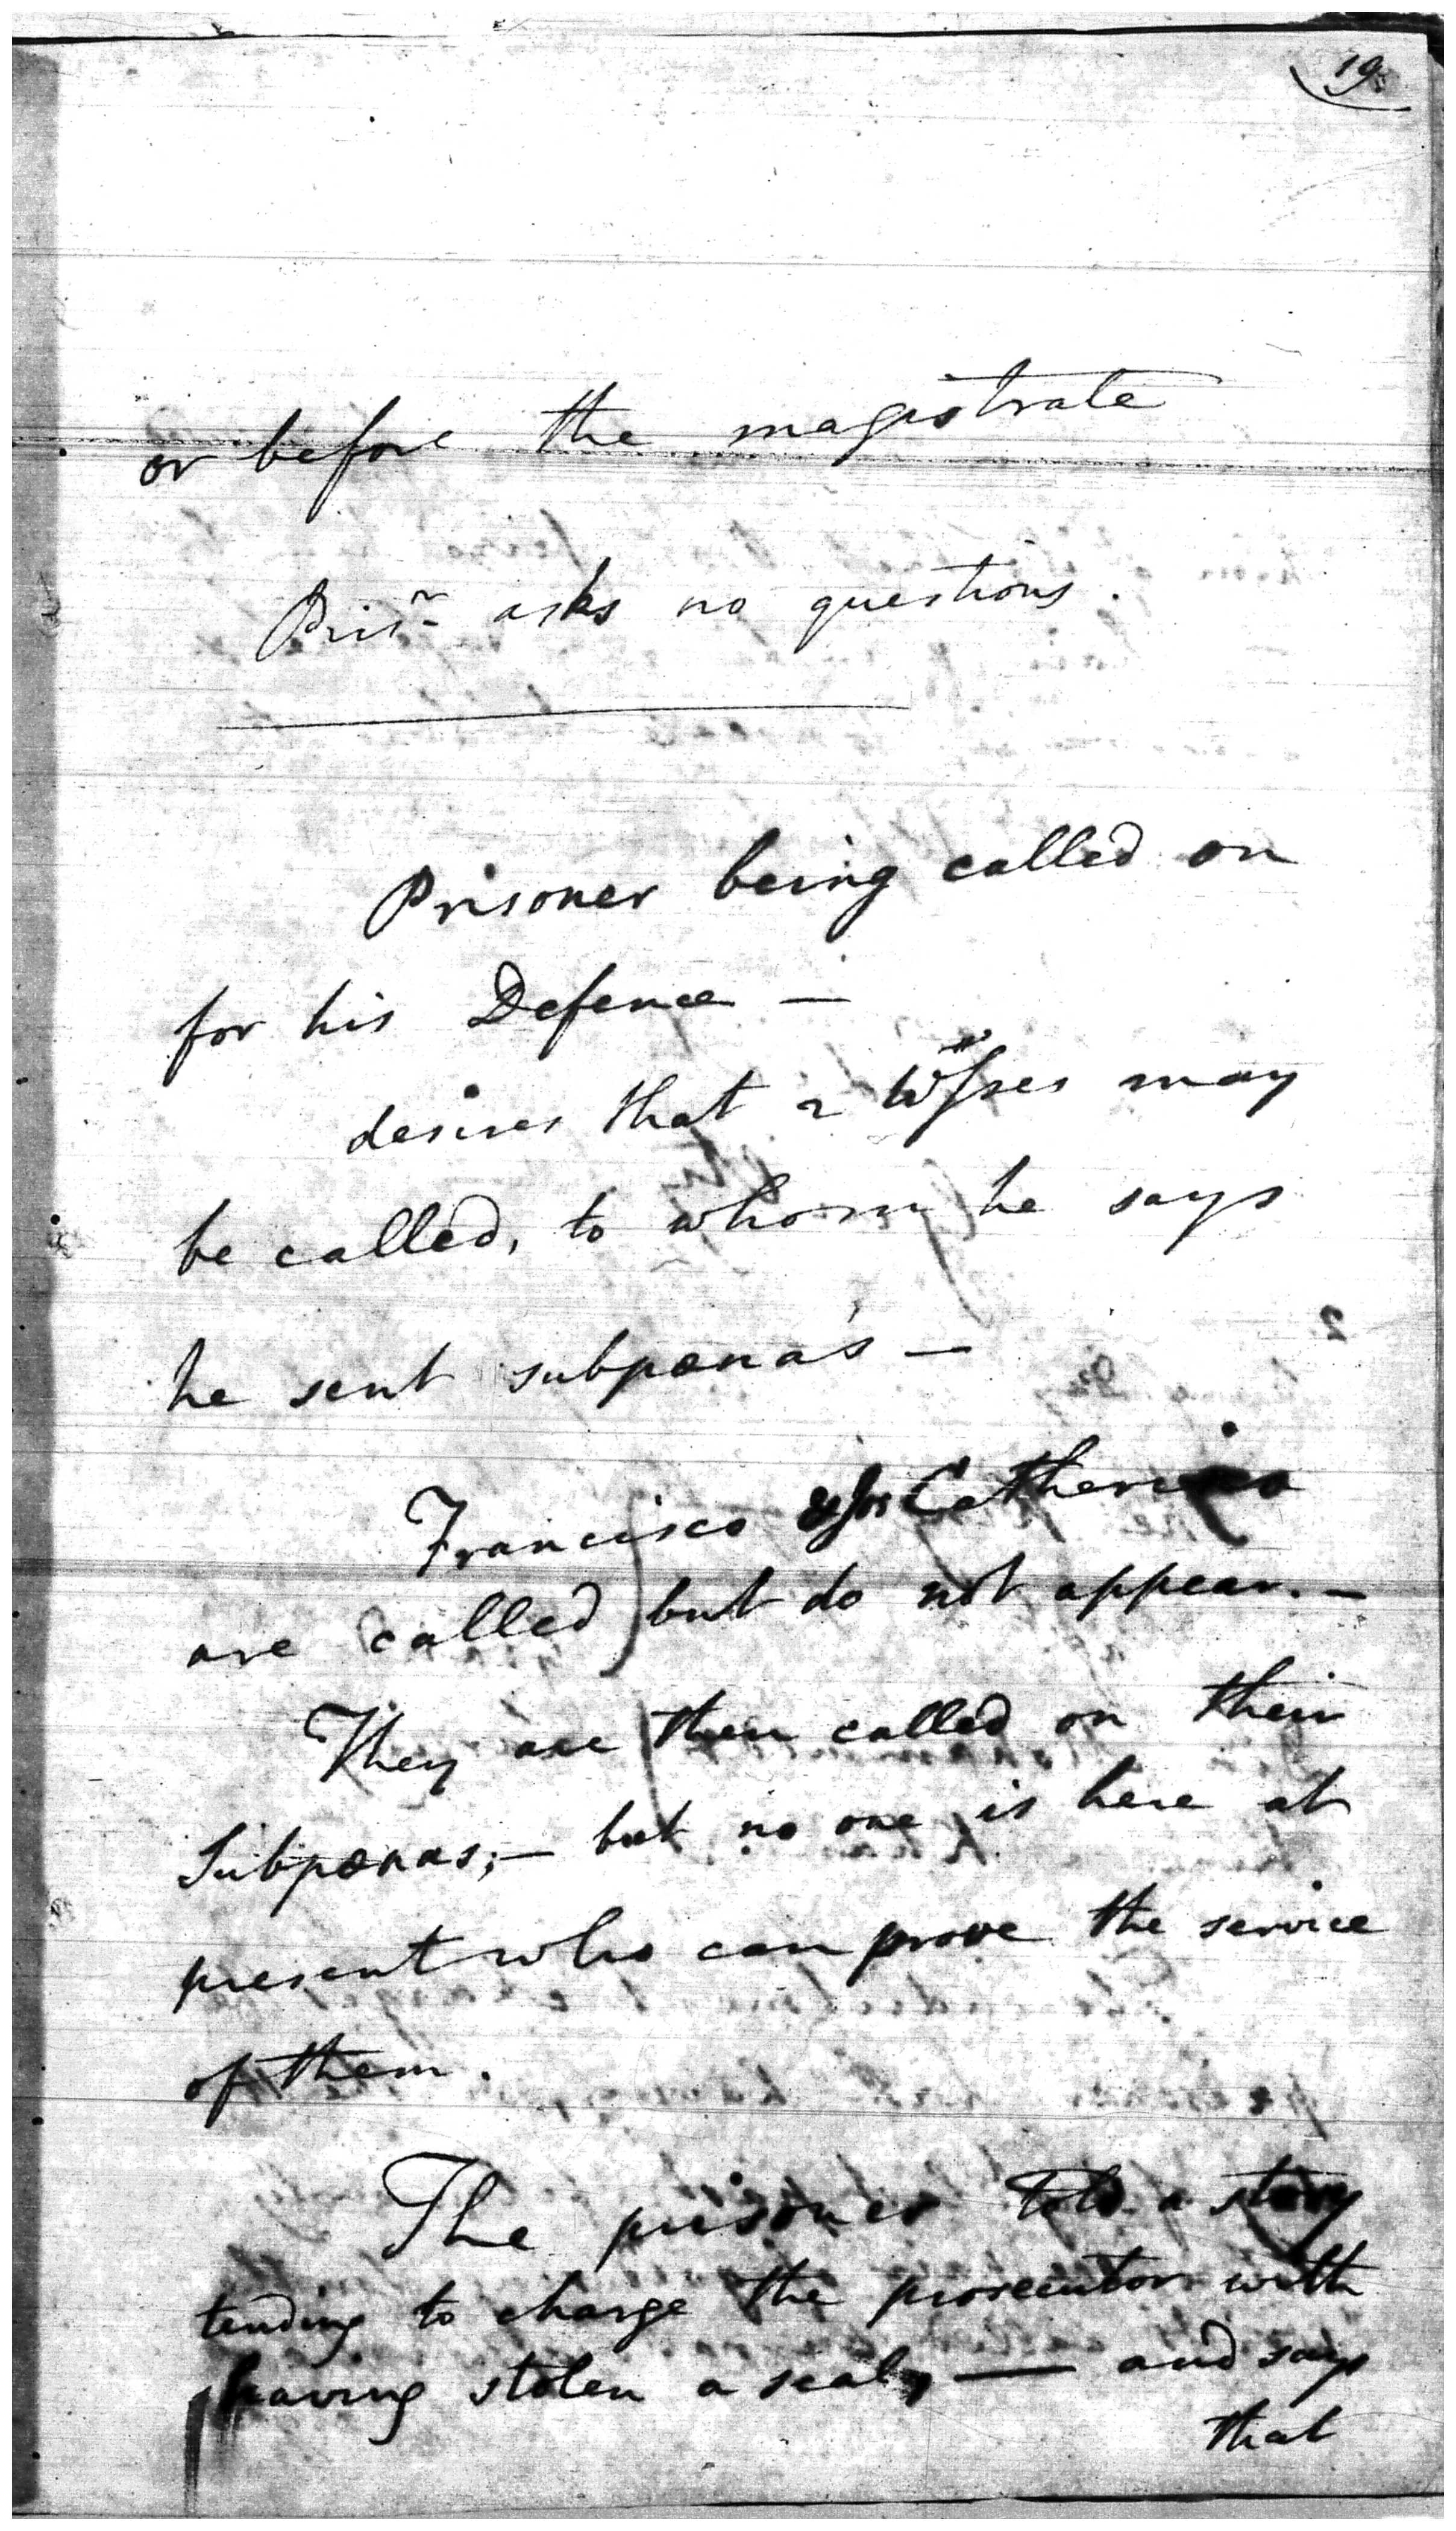 19.
or before the magistrate
Prisr asks no questions.
Prisoner being called on
for his Defence —
desires that 2 Wsses may
be called, to whom he says
he sent subpœna's —
Francisco
are called but do not appear. —
They are then called on their
Subpœnas; — but no one is here at
present who can prove the service
of them.
The prisoner told a story
tending to charge the prosecutor with
having stolen a seal, — and says
that